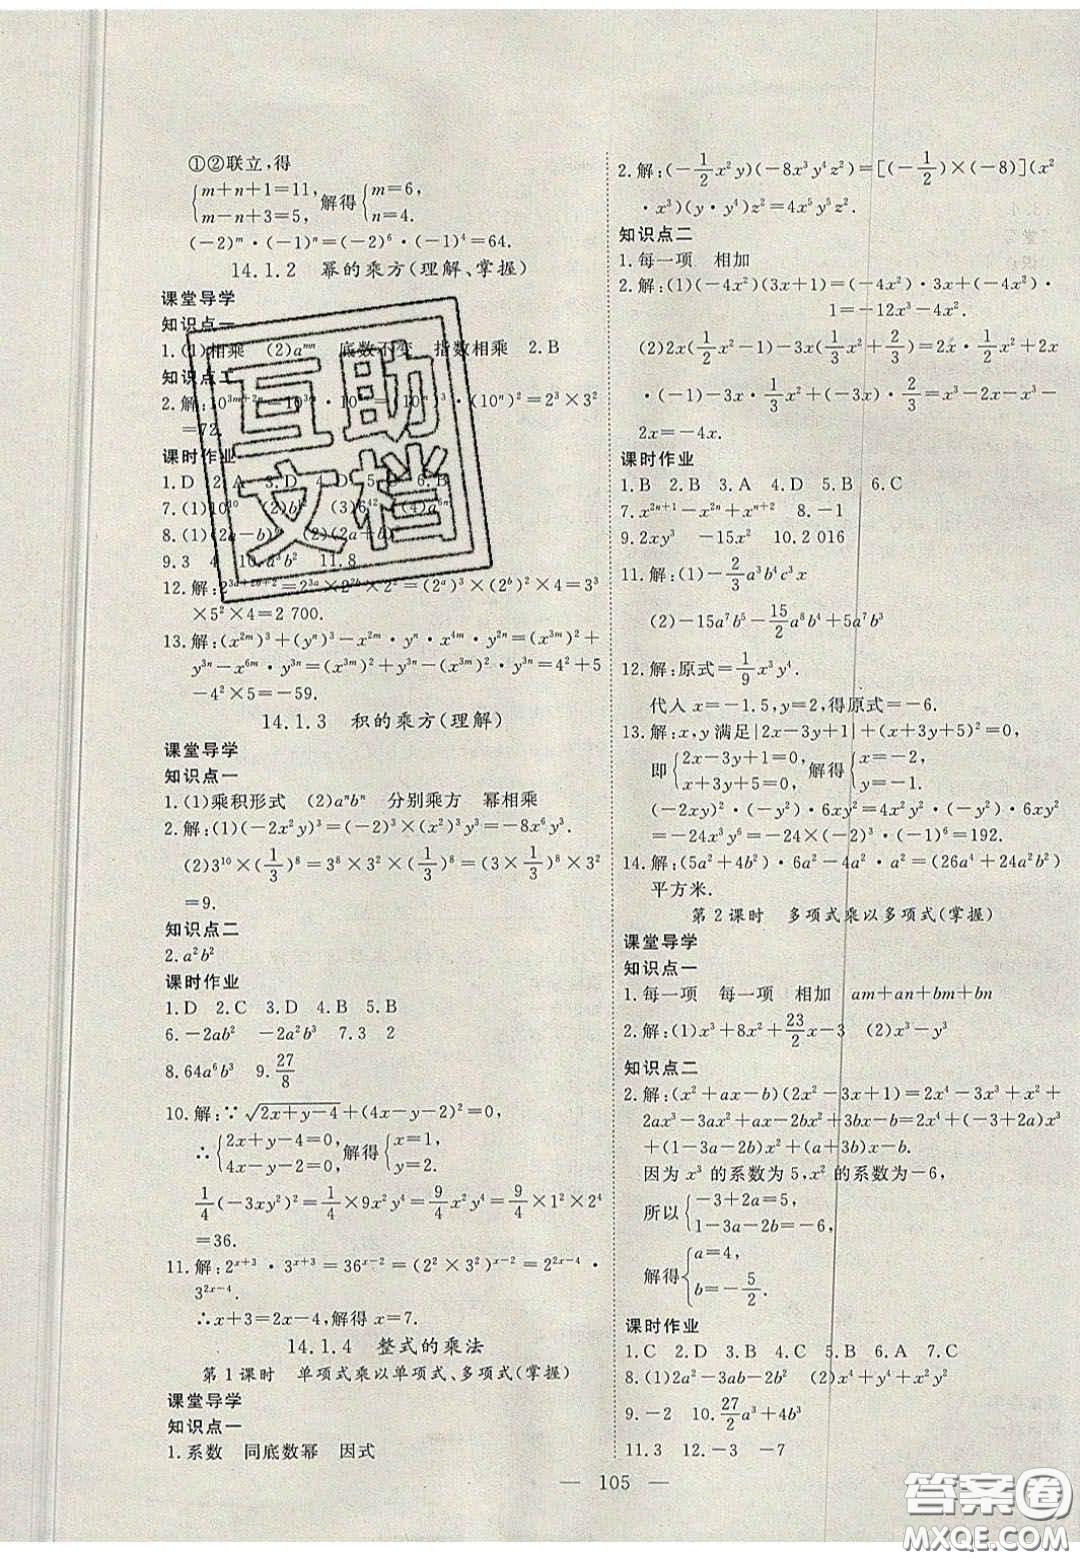 ①②联立,得
{m+n+1=11, m-n+3=5, 解得{m=6, n=4.
(-2)ᵐ·(-1)ⁿ=(-2)⁶·(-1)⁴=64.
14.1.2 幂的乘方(理解、掌握)
课堂导学
知识点一
1.(1)相乘 (2)aᵐⁿ 底数不变 指数相乘 2.B
知识点二
=72.
课时作业
9.3 4
×5²×4=2 700.
13.解:(x²ᵐ)³+(yⁿ)³-x²ᵐ·yⁿ·x⁴ᵐ·y²ⁿ=(x²ᵐ)³+
y³ⁿ-x⁶ᵐ·y³ⁿ=(x³ᵐ)²+y³ⁿ-(x³ᵐ)²·y³ⁿ=4²+5
-4²×5=-59.
14.1.3 积的乘方(理解)
课堂导学
知识点一
1.(1)乘积形式 (2)aⁿbⁿ 分别乘方 幂相乘
2.解:(1)(-2x²y)³=(-2)³×(x²)³y³=-8x⁶y³.
(2)3¹⁰×(1/3)⁸=3⁸×3²×(1/3)⁸=(3×1/3)⁸×3²
=9.
知识点二
2.a²b²
课时作业
1.D 2.C 3.D 4.B 5.B
6.-2ab² -2a²b² 7.3 2
8.64a⁶b³ 9.27/8
10.解:∵√(2x+y-4)+(4x-y-2)²=0,
∴{2x+y-4=0, 4x-y-2=0, 解得{x=1, y=2.
1/4(-3xy²)²=1/4×9x²y⁴=9/4x²y⁴=9/4×1×2⁴
=36.
11.解:2ˣ⁺³·3ˣ⁺³=36ˣ⁻²=(2²×3²)ˣ⁻²=2²ˣ⁻⁴·
3²ˣ⁻⁴.
∴x+3=2x-4,解得x=7.
14.1.4 整式的乘法
第1课时 单项式乘以单项式、多项式(掌握)
课堂导学
知识点一
1.系数 同底数幂 因式
2.解:(-1/2x²y)(-8x³y⁴z²)=[(-1/2)×(-8)](x²
·x³)(y·y⁴)z²=4x⁵y⁵z².
知识点二
1.每一项 相加
2.解:(1)(-4x²)(3x+1)=(-4x²)·3x+(-4x²)·
1=-12x³-4x².
(2)2x(1/2x²-1)-3x(1/3x²+1)=2x·1/2x²+2x
·(-1)-3x·1/3x²+(-3x)·1=x³-2x-x³-
2x=-4x.
课时作业
1.B 2.B 3.A 4.D 5.B 6.C
7.x²ⁿ⁺¹-x²ⁿ+xⁿ⁺² 8.-1
9.2xy³ -15x² 10.2 016
11.解:(1)-2/3a³b⁴c³x
(2)-15a⁷b⁵-15/2a⁵b⁴+5a⁷b³
12.解:原式=1/9x³y⁴.
代入x=-1.5,y=2,得原式=-6.
13.解:x,y满足|2x-3y+1|+(x+3y+5)²=0,
即{2x-3y+1=0, x+3y+5=0, 解得{x=-2, y=-1.
(-2xy)²·(-y²)·6xy²=4x²y²·(-y²)·6xy²
=-24x³y⁶=-24×(-2)³×(-1)⁶=192.
14.解:(5a²+4b²)·6a²-4a²·a²=(26a⁴+24a²b²)
平方米.
第2课时 多项式乘以多项式(掌握)
课堂导学
知识点一
1.每一项 每一项 相加 am+an+bm+bn
2.解:(1)x³+8x²+23/2x-3 (2)x³-y³
知识点二
2.解:(x²+ax-b)(2x²-3x+1)=2x⁴-3x³+x²+
2ax³-3ax²+ax-2bx²+3bx-b=2x⁴+(-3+2a)x³
+(1-3a-2b)x²+(a+3b)x-b.
因为x³的系数为5,x²的系数为-6,
所以{-3+2a=5, 1-3a-2b=-6,
解得{a=4, b=-5/2.
课时作业
1.C 2.D 3.D 4.B 5.B 6.A 7.C
8.(1)2a²-3ab-2b² (2)x⁴+y⁴+x²y²
9.-2 10.27/2a³+4b³
11.3 12.-3 -7
— 105 —
互助
文档
答案圈
MXQE.COM